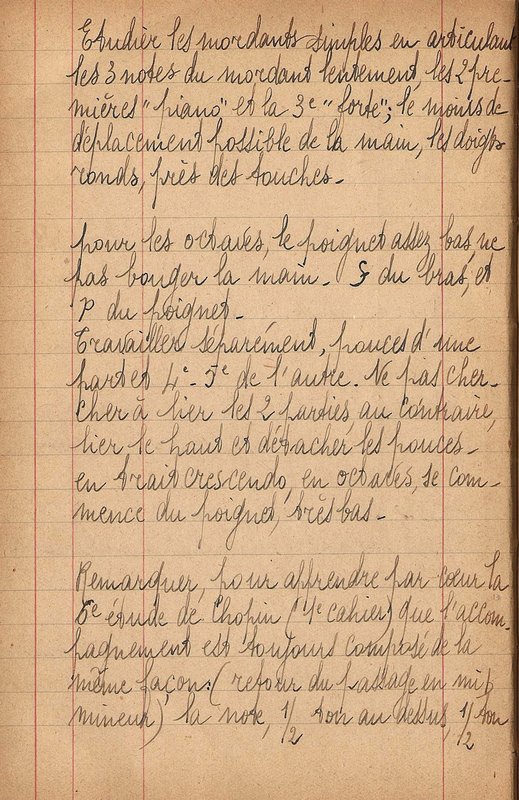 Etudier les mordants simples en articulant
les 3 notes du mordant lentement, les 2 pre-
mières "piano" et la 3e "forte"; le moins de
déplacement possible de la main, les doigts
ronds, près des touches.
pour les octaves, le poignet assez bas, ne
pas bouger la main. F du bras, et
P du poignet.
Travailler séparément, pouces d'une
part et 4e - 5e de l'autre. Ne pas cher-
cher à lier les 2 parties, au contraire,
lier le haut et détacher les pouces.
en trait crescendo, en octaves, se com-
mence du poignet, très bas.
Remarquer, pour apprendre par cœur la
6e étude de Chopin (1e cahier) que l'accom-
pagnement est toujours composé de la
même façon: (retour du passage en mi b
mineur) la note, 1/2 ton au dessus, 1/2 ton